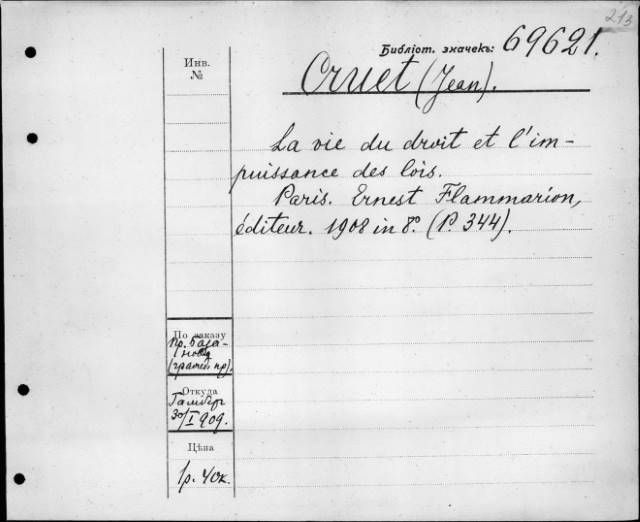 213
Библіот. значекъ: 69621.
Инв.
№
Cruet (Jean).
La vie du droit et l'im-
puissance des lois.
Paris. Ernest Flammarion,
éditeur. 1908 in 8º. (P. 344).
По заказу
пр.
Откуда
30/I 909.
Цѣна
1р. 40к.